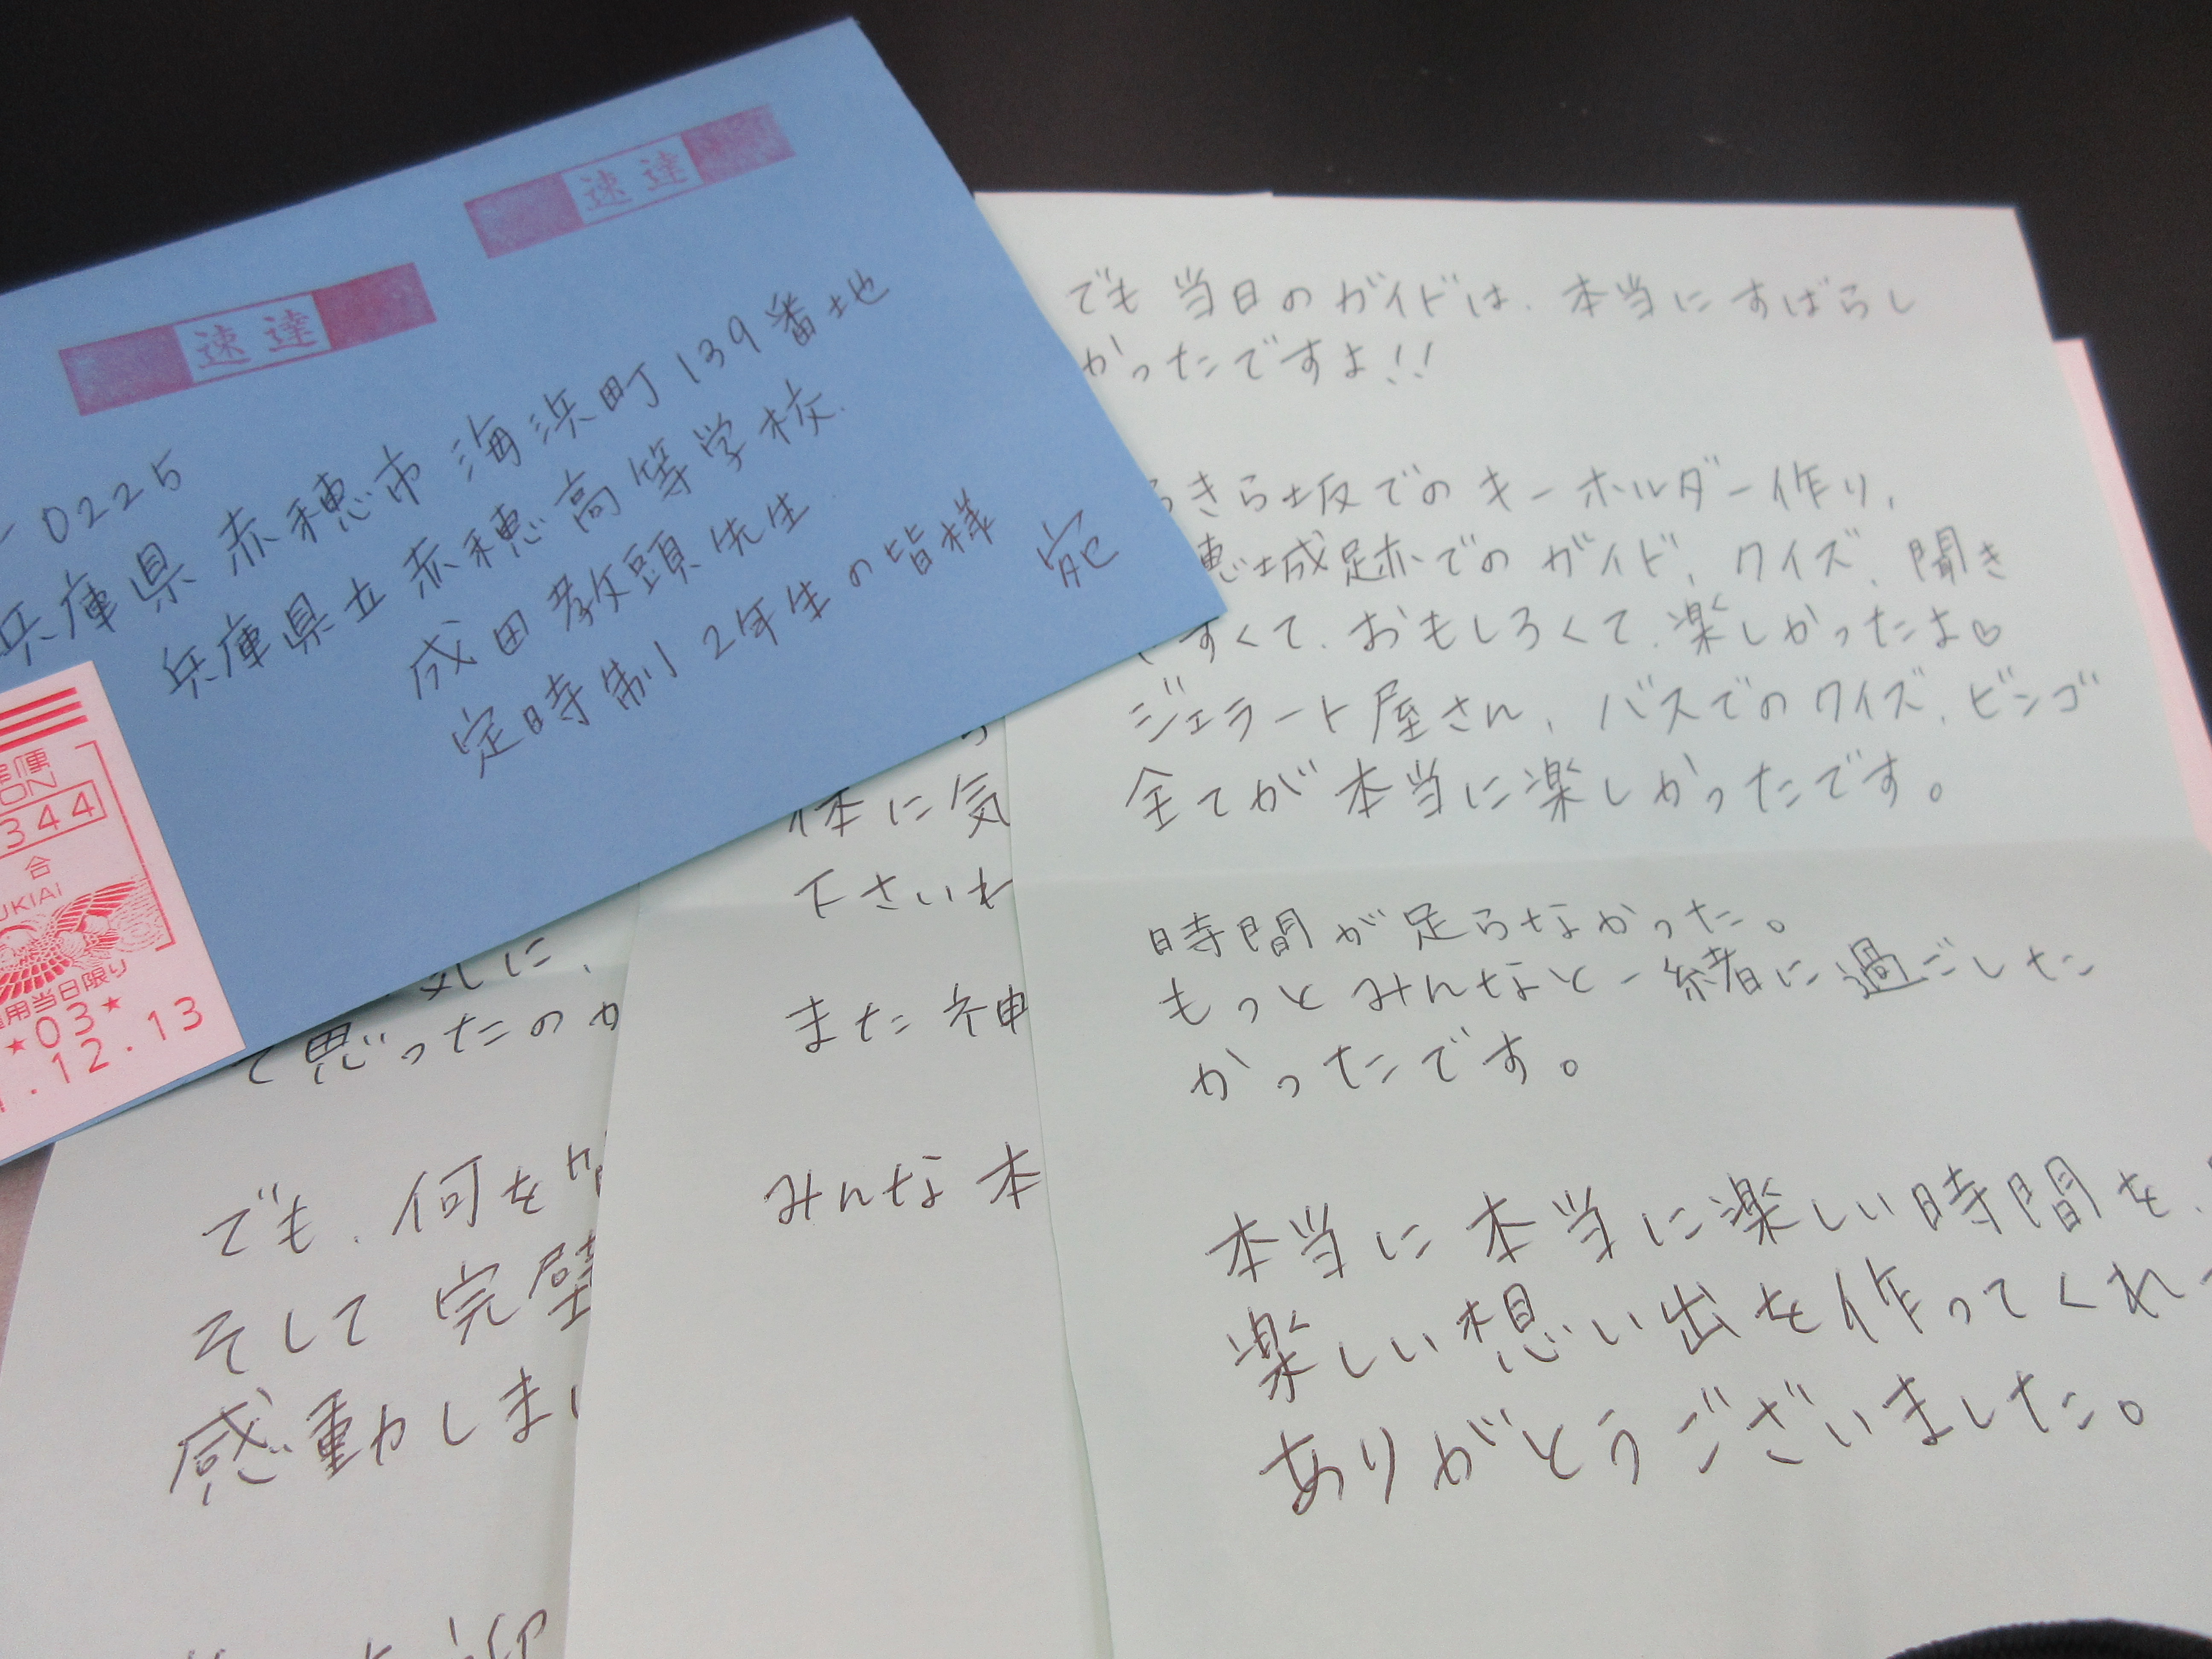 速達
速達
0225
兵庫県 赤穂市 海浜町139番地
兵庫県立赤穂高等学校
成田教頭先生
定時制2年生の皆様 宛
344
合
UKIAI
用当日限り
★03★
.12.13
でも 当日のガイドは、本当にすばらし
かったですよ!!
きら坂でのキーホルダー作り、
穂城跡でのガイド、クイズ、聞き
すくて、おもしろくて、楽しかったよ♡
ジェラート屋さん、バスでのクイズ、ビンゴ
全てが本当に楽しかったです。
時間が足らなかった。
もっとみんなと一緒に過ごした
かったです。
本当に本当に楽しい時間を、
楽しい想い出を作ってくれ
ありがとうございました。
体に気
下さいね
また神
みんな本
気に、
て思ったのか
でも、何を
そして完璧
感動しまし